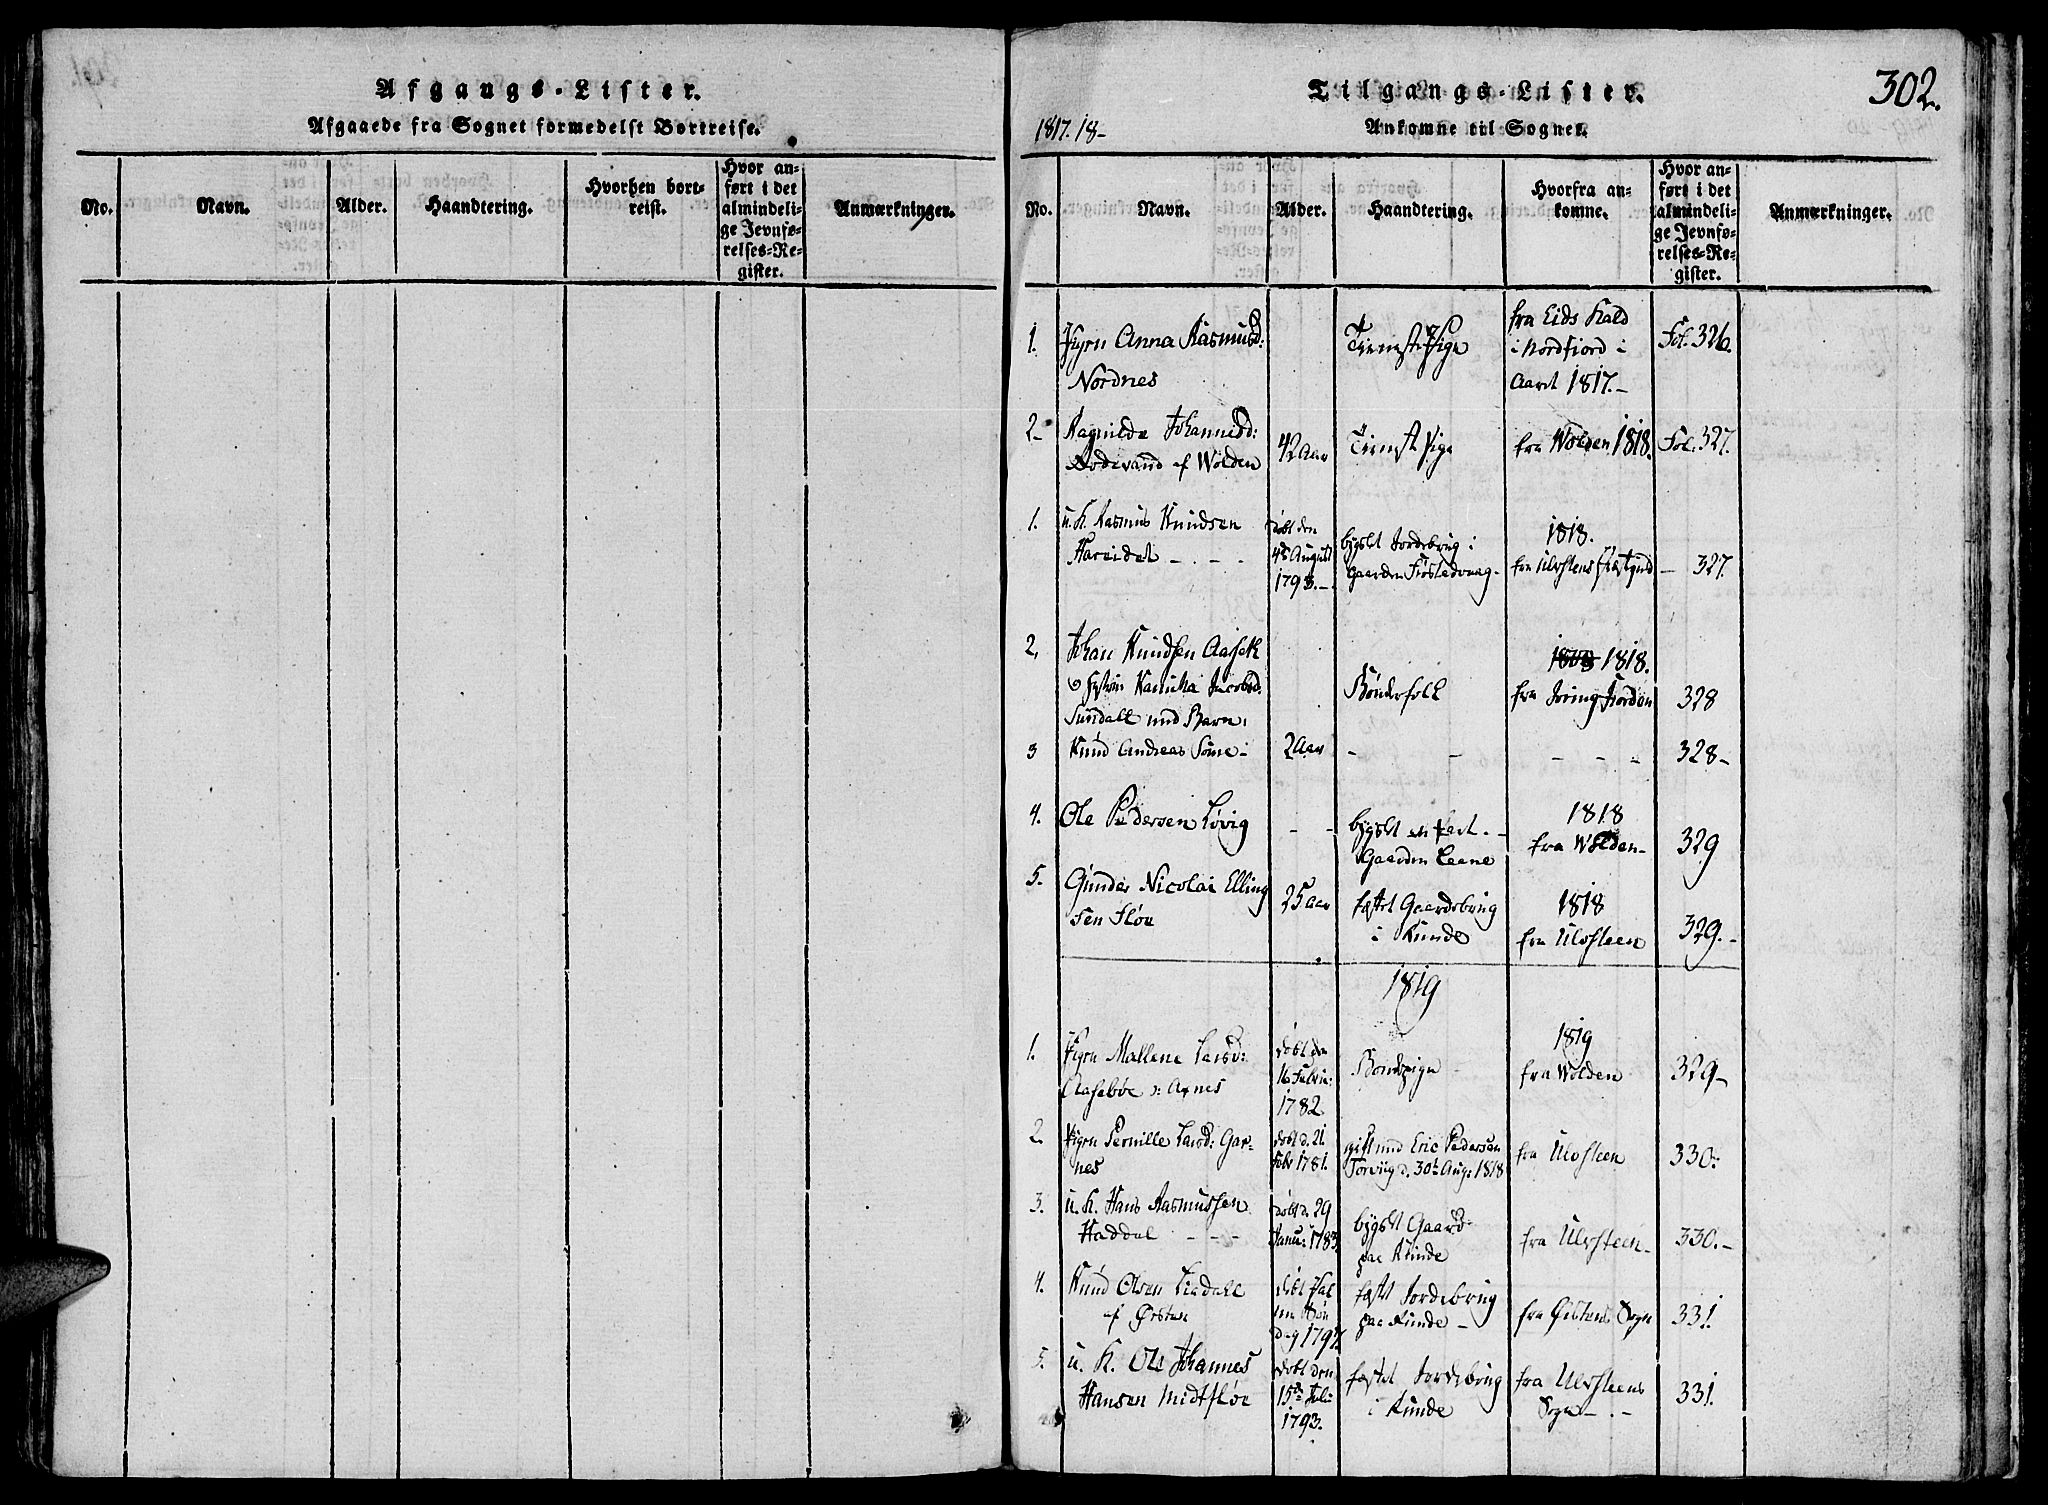 Afgangs-Lister.
Afgaaede fra Sognet formedelst Bortreise.
No.
Navn.
Alder.
Haandtering.
Hvorhen bort-
reist.
Hvor an-
ført i det
almindeli-
ge Jevnfø-
relses-Re-
gister.
Anmærkninger.
302.
Tilgangs-Lister.
1817.18-
Ankomne til Sognet.
No.
Navn.
Alder.
Haandtering.
Hvorfra an-
komne.
Hvor an-
ført i det
almindeli-
ge Jevnfø-
relses-Re-
gister.
Anmærkninger.
1. Pigen Anna Rasmusd:
Nordnes
Tienestepige
fra Eids Kald
i Nordfiord i
Aaret 1817.-
Fol. 326.
2- Ragnilde Johannisd:
af Wolden
42 Aar
Tienestpige
fra Wolden 1818.
Fol. 327.
1. u. K. Rasmus Knudsen
Hareidet - - -
døbt den
4de August
1793.-
bygslet Jordebrug i
Gaarden
1818.
fra Ulvsteens
- 327.
2, Johan Knudsen Aasek
Jacobsd.
Sundall med Barn:
Bønderfolk
1818.
fra
328
3 Knud Andreas
2 Aar
- -
- - -
328-
4. Ole Pedersen Løvig
- -
bygslet
Gaarden Leene
1818
fra Wolden-
329
5. Gunder Nicolai Elling
sen Fløe
25 Aar
fæstet Gaardebrug
i Runde
1818
fra Ulvsteen
329.-
1819
1. Pigen Mallene Larsd:
Aasebøe
døbt den
16
1782.
Bondepige
1819
fra Wolden
329-
2. Pigen Pernille Larsd: Gar-
nes
døbt d. 21
Febr 1781.
gift med Eric Pedersen
Torvig d. 30te Aug: 1818
fra Ulvsteen
330.
3. u. K. Hans Rasmussen
Haddal - - -
døbt d. 29
Janu: 1783.
bygslet Gaard
paa Runde
fra Ulvsteen-
330.-
4. Knud Olsen Liadall
af Ørsten
døbt Pal
me Søn
dag 1797.
fæstet Jordebrug
paa Runde -
fra Ørstens Sogn
331.
5. u. K. Ole Johannes
Hansen Midtfløe
døbt den
15de Julii
1793.
fæstet Jordebrug
i Runde
fra Ulvsteens
Sogn - . -
331.